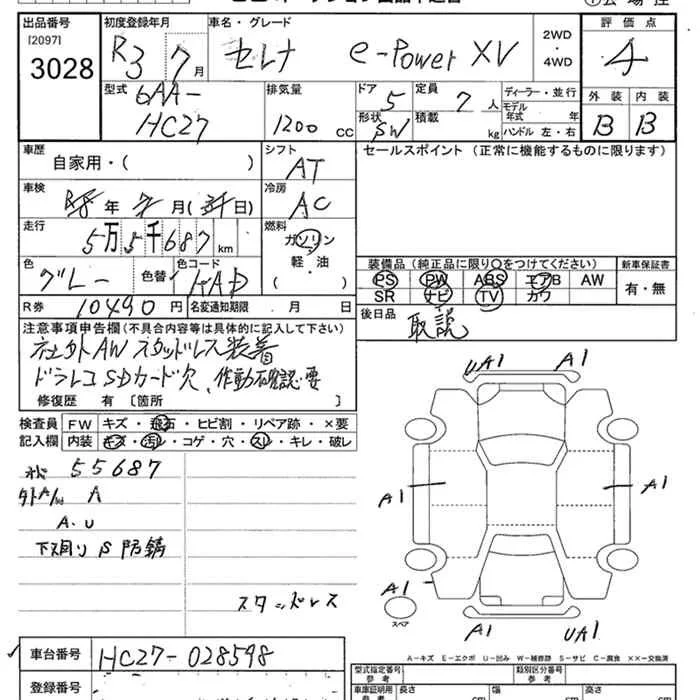 出品番号
[2097]
3028
初度登録年月
R3 7月
車名・グレード
セレナ e-Power XV
2WD
・
4WD
評価点
4
型式
6AA-
HC27
排気量
1200 CC
ドア 5
形状 SW
定員 7 人
積載 kg
ディーラー・並行
モデル
年式 年
ハンドル 左・右
外装 内装
B B
車歴
自家用・( )
シフト
AT
セールスポイント (正常に機能するものに限ります)
車検
R8年 7月( 日)
冷房
AC
走行
5万5千687km
燃料
ガソリン
・
軽・油
( )
色
グレー
色替
色コード
KAD
装備品(純正品に限り○をつけてください)
PS PW ABS エアB AW
SR ナビ TV カワ
新車保証書
有・無
R券 10490円
名変通知期限 月 日
後日品
取説
注意事項申告欄(不具合内容等は具体的に記入して下さい)
社外AW スタッドレス装着
ドラレコSDカード欠、作動確認要
修復歴 有〔箇所 〕
検査員
記入欄
FW キズ・飛石・ヒビ割・リペア跡・×要
内装 キズ・汚レ・コゲ・穴・スレ・キレ・破レ
55687
外A/W A
A.U
下廻り S 防錆
スタッドレス
UA1 A1
A1 A1
A1
スペア
A1 UA1
A-キズ E-エクボ U-凹み W-補修跡 S-サビ C-腐食 ××-交換済
車台番号
HC27-028598
登録番号
型式指定番号
参考
類別区分番号
参考
車庫証明用
参考
長さ cm
幅 cm
高さ cm